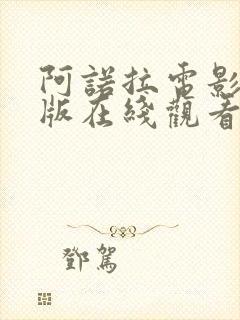 阿諾拉電影
版在綫觀看
鄧駕